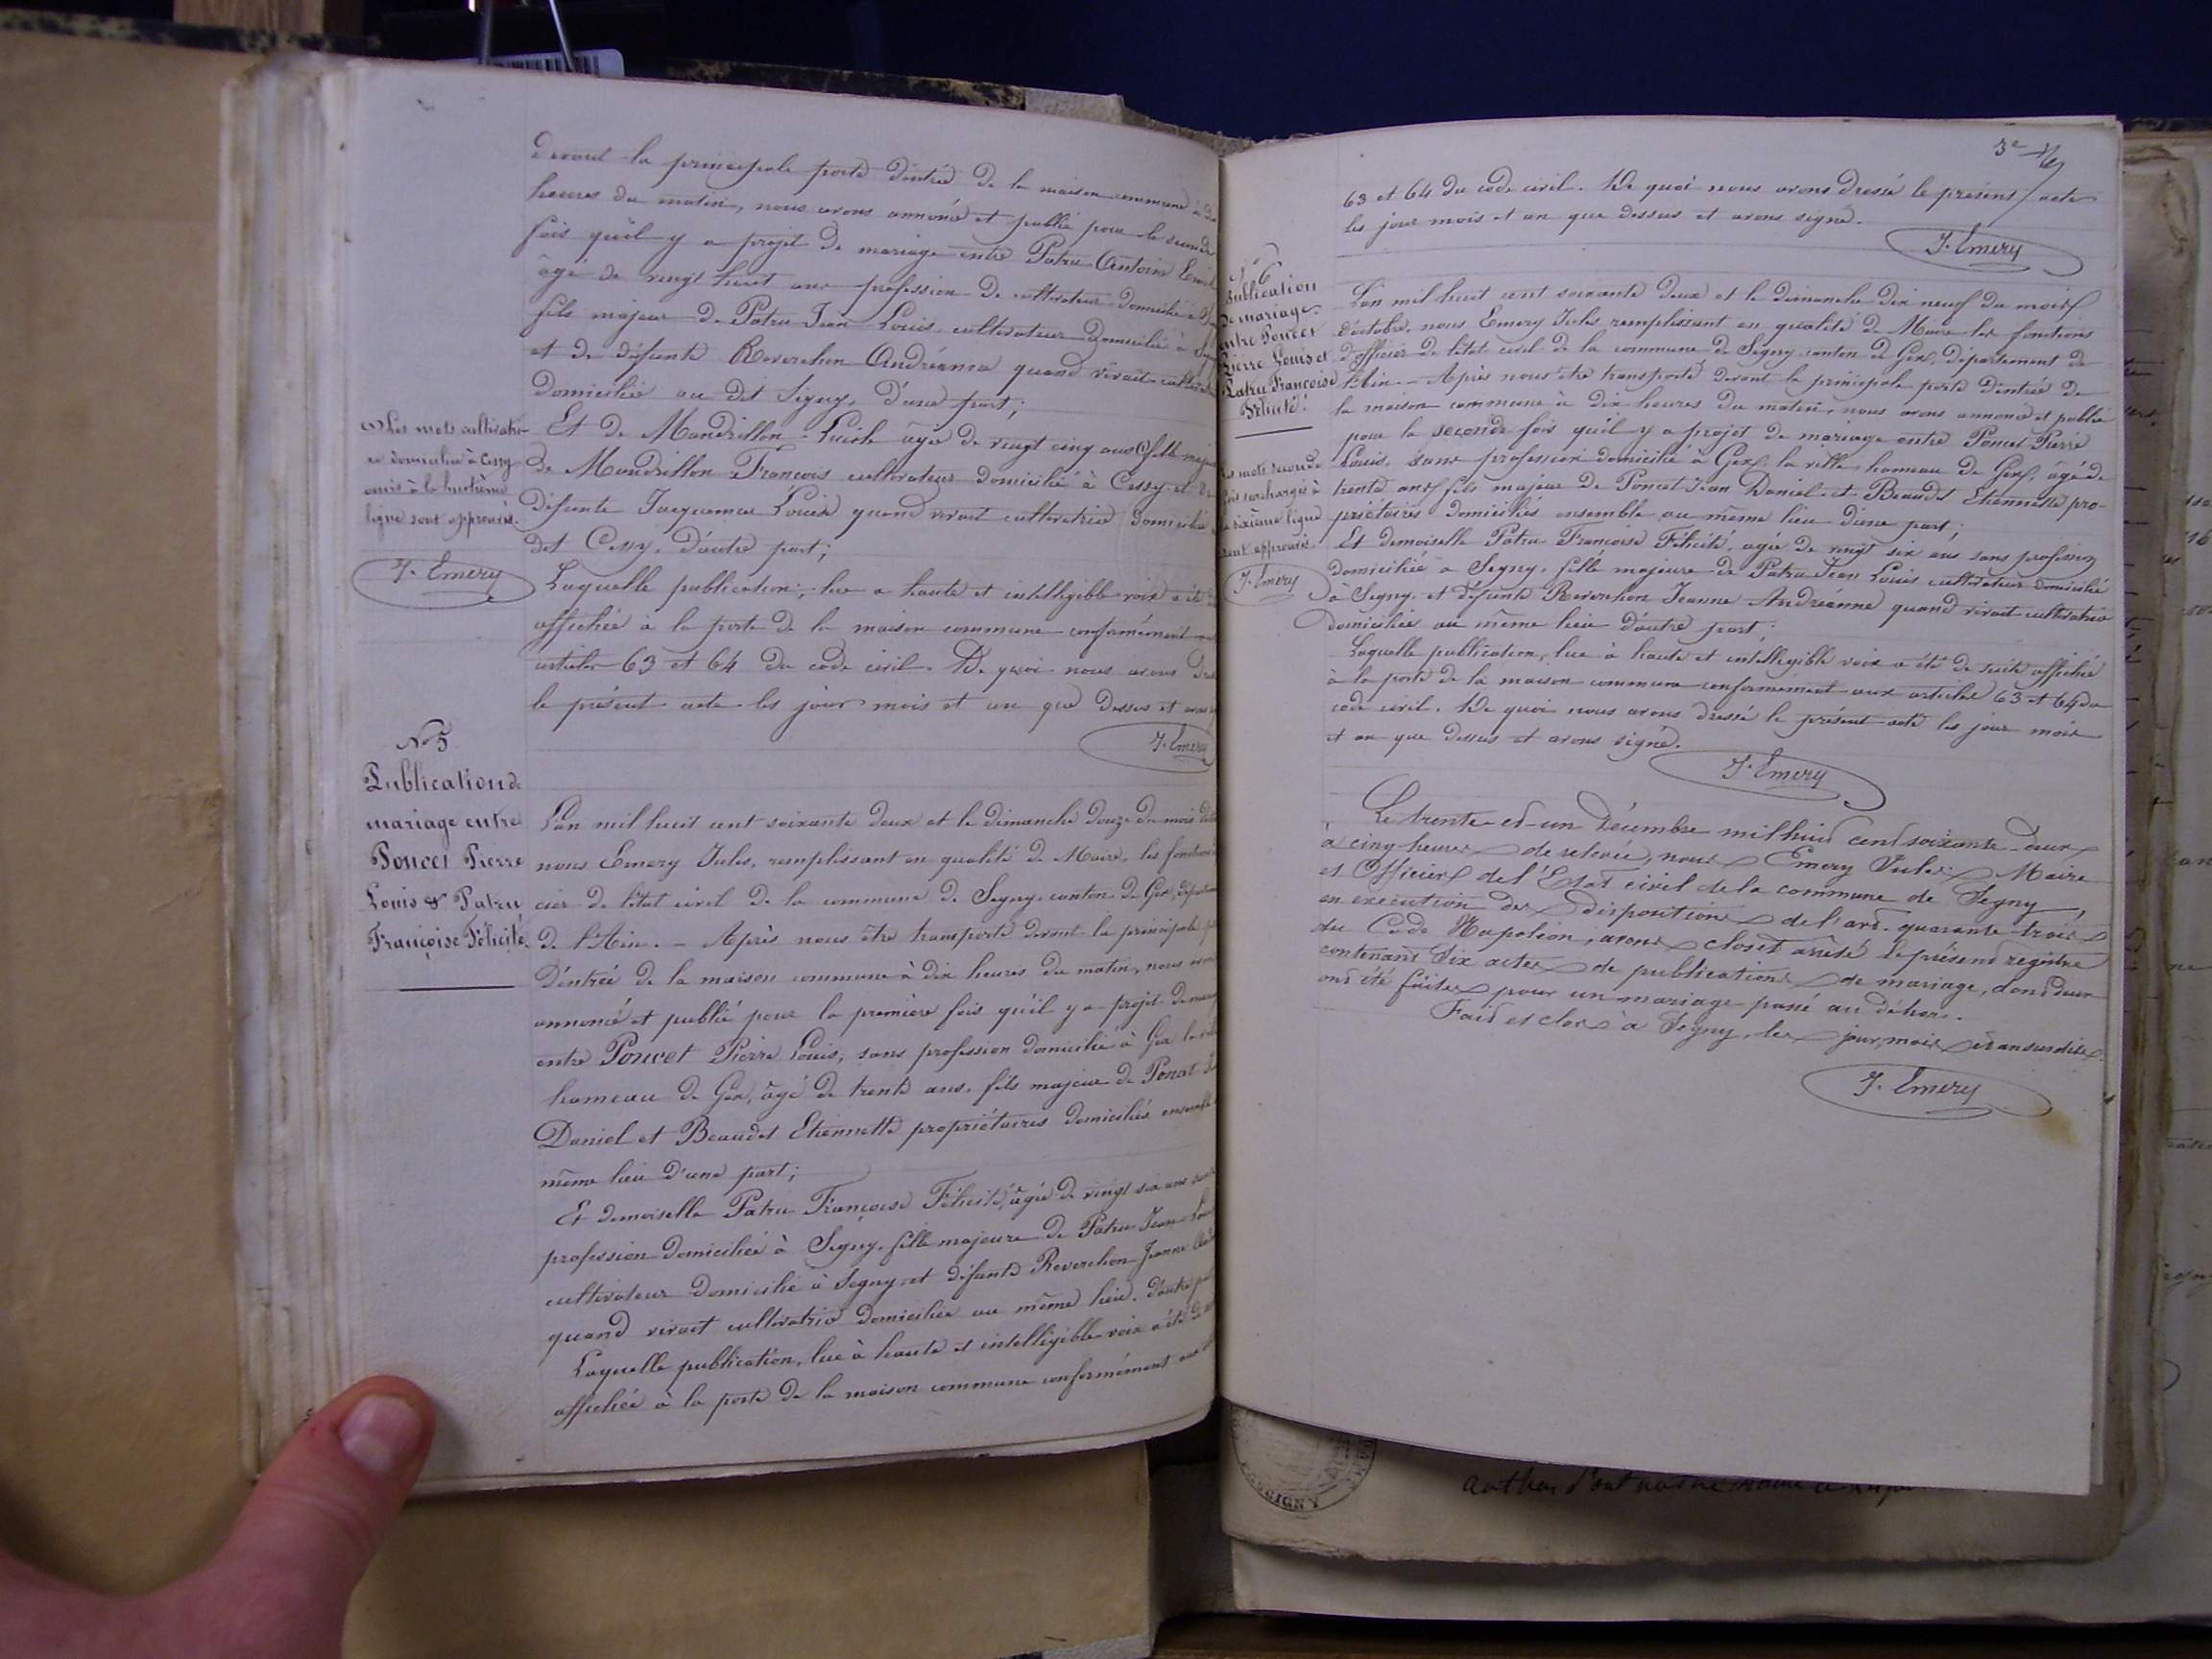 devant la principale porte d'entrée de la maison commune à
heures du matin, nous avons annoncé et publié pour la seconde
fois qu'il y a projet de mariage entre Patru Antoine
âgé de vingt huit ans profession de cultivateur domicilié à
fils majeur de Patru Jean Louis cultivateur domicilié à
et de défunte Reverchon Andréanne quand vivait
domiciliée au dit Segny, d'une part;
Et de Mandrillon Lucile âgée de vingt cinq ans fille
de Mandrillon François cultivateur domicilié à Cessy et
défunte Jaquemin Louise quand vivait cultivatrice domiciliée
dit Cessy, d'autre part;
Laquelle publication, lue a haute et intelligible voix a été
affichée à la porte de la maison commune conformément
articles 63 et 64 du code civil. De quoi nous avons
le présent acte les jour mois et an que dessus et avons
J. Emery
Les mots cultivatri-
ce domiciliée à Cessy
omis à la huitième
ligne sont approuvés.
J. Emery
No 5
Publication de
mariage entre
Poncet Pierre
Louis & Patru
Françoise Félicité.
L'an mil huit cent soixante deux et le dimanche douze du mois
nous Emery Jules, remplissant en qualité de Maire, les
cier de l'état civil de la commune de Segny, canton de Gex,
de l'Ain. - Après nous être transporté devant la principale
d'entrée de la maison commune à dix heures du matin, nous
annoncé et publié pour la première fois qu'il y a projet de
entre Poncet Pierre Louis, sans profession domicilié à Gex la
hameau de Gex, âgé de trente ans, fils majeur de Poncet
Daniel et Beaudet Etiennette propriétaires domiciliés ensemble
même lieu d'une part;
Et demoiselle Patru Françoise Félicité, âgée de vingt six ans sans
profession domiciliée à Segny, fille majeure de Patru Jean
cultivateur domicilié à Segny et défunte Reverchon Jeanne
quand vivait cultivatrice domiciliée au même lieu. d'autre
Laquelle publication, lue à haute et intelligible voix a été de
affichée à la porte de la maison commune conformément aux
3e
63 et 64 du code civil. De quoi nous avons dressé le présent acte
les jour mois et an que dessus et avons signé.
J. Emery
No 6
Publication
de mariage
entre Poncet
Pierre Louis et
Patru Françoise
Félicité.
mots seconde
fois surchargés à
sixième ligne
sont approuvés.
J. Emery
L'an mil huit cent soixante deux et le dimanche dix neuf du mois
d'octobre, nous Emery Jules remplissant en qualité de Maire les fonctions
d'officier de l'état civil de la commune de Segny canton de Gex, département de
l'Ain. - Après nous être transporté devant la principale porte d'entrée de
la maison commune à dix heures du matin, nous avons annoncé et publié
pour la seconde fois qu'il y a projet de mariage entre Poncet Pierre
Louis, sans profession domicilié à Gex la ville hameau de Gex, âgé de
trente ans fils majeur de Poncet Jean Daniel et Beaudet Etiennette pro-
priétaires domiciliés ensemble au même lieu d'une part;
Et demoiselle Patru Françoise Félicité, agée de vingt six ans sans profession
domiciliée à Segny, fille majeure de Patru Jean Louis cultivateur domicilié
à Segny, et défunte Reverchon Jeanne Andréanne quand vivait cultivatrice
domiciliée au même lieu d'autre part;
Laquelle publication, lue à haute et intelligible voix a été de suite affichée
à la porte de la maison commune conformément aux articles 63 et 64 du
code civil. De quoi nous avons dressé le présent acte les jour mois
et an que dessus et avons signé.
J. Emery
Le trente et un Décembre mil huit cent soixante-deux
à cinq heures de relevée, nous Emery Jules Maire
et Officier de l'Etat civil de la commune de Segny,
en exécution des dispositions de l'art. quarante-trois
du Code Napoléon, avons clos et arrêté le présent registre
contenant six actes de publications de mariage, dont deux
ont été faites pour un mariage passé au déhors.
Fait et clos à Segny, les jour, mois et an susdits.
J. Emery